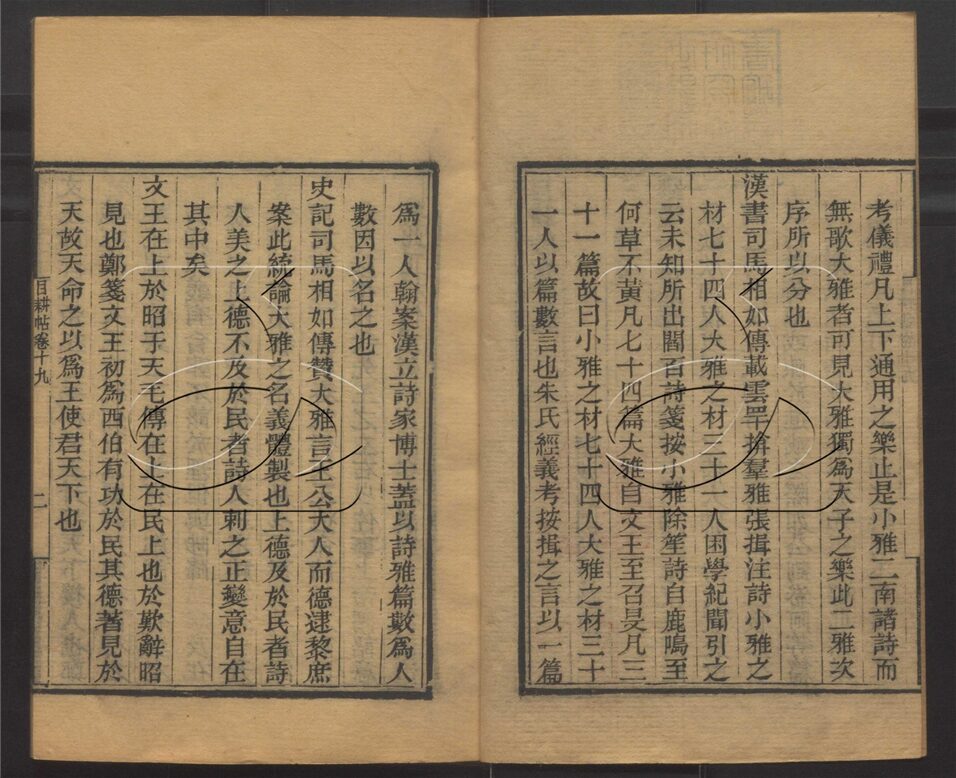 考儀禮凡上下通用之樂止是小雅二南諸詩而
無歌大雅者可見大雅獨爲天子之樂此二雅次
序所以分也
漢書司馬相如傳載雲䍐揜羣雅張揖注詩小雅之
材七十四人大雅之材三十一人困學紀聞引之
云未知所出閻百詩箋按小雅除笙詩自鹿鳴至
何草不黃凡七十四篇大雅自文王至召旻凡三
十一篇故曰小雅之材七十四人大雅之材三十
一人以篇數言也朱氏經義考按揖之言以一篇
爲一人翰案漢立詩家博士蓋以詩雅篇數爲人
數因以名之也
史記司馬相如傳贊大雅言王公大人而德逮黎庶
案此統論大雅之名義體製也上德及於民者詩
人美之上德不及於民者詩人刺之正變意自在
其中矣
文王在上於昭于天毛傳在上在民上也於歎辭昭
見也鄭箋文王初爲西伯有功於民其德著見於
天故天命之以爲王使君天下也
目耕帖卷十九
二